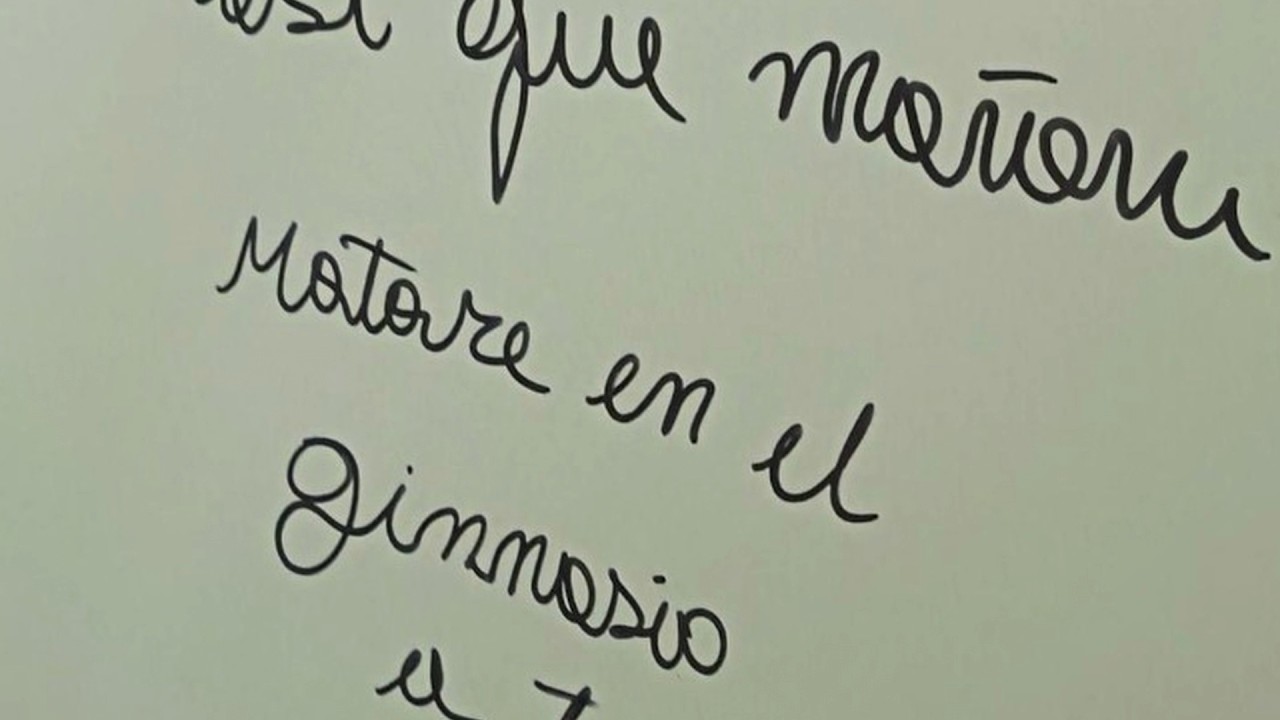 así que mañana
Matare en el
ginnasio